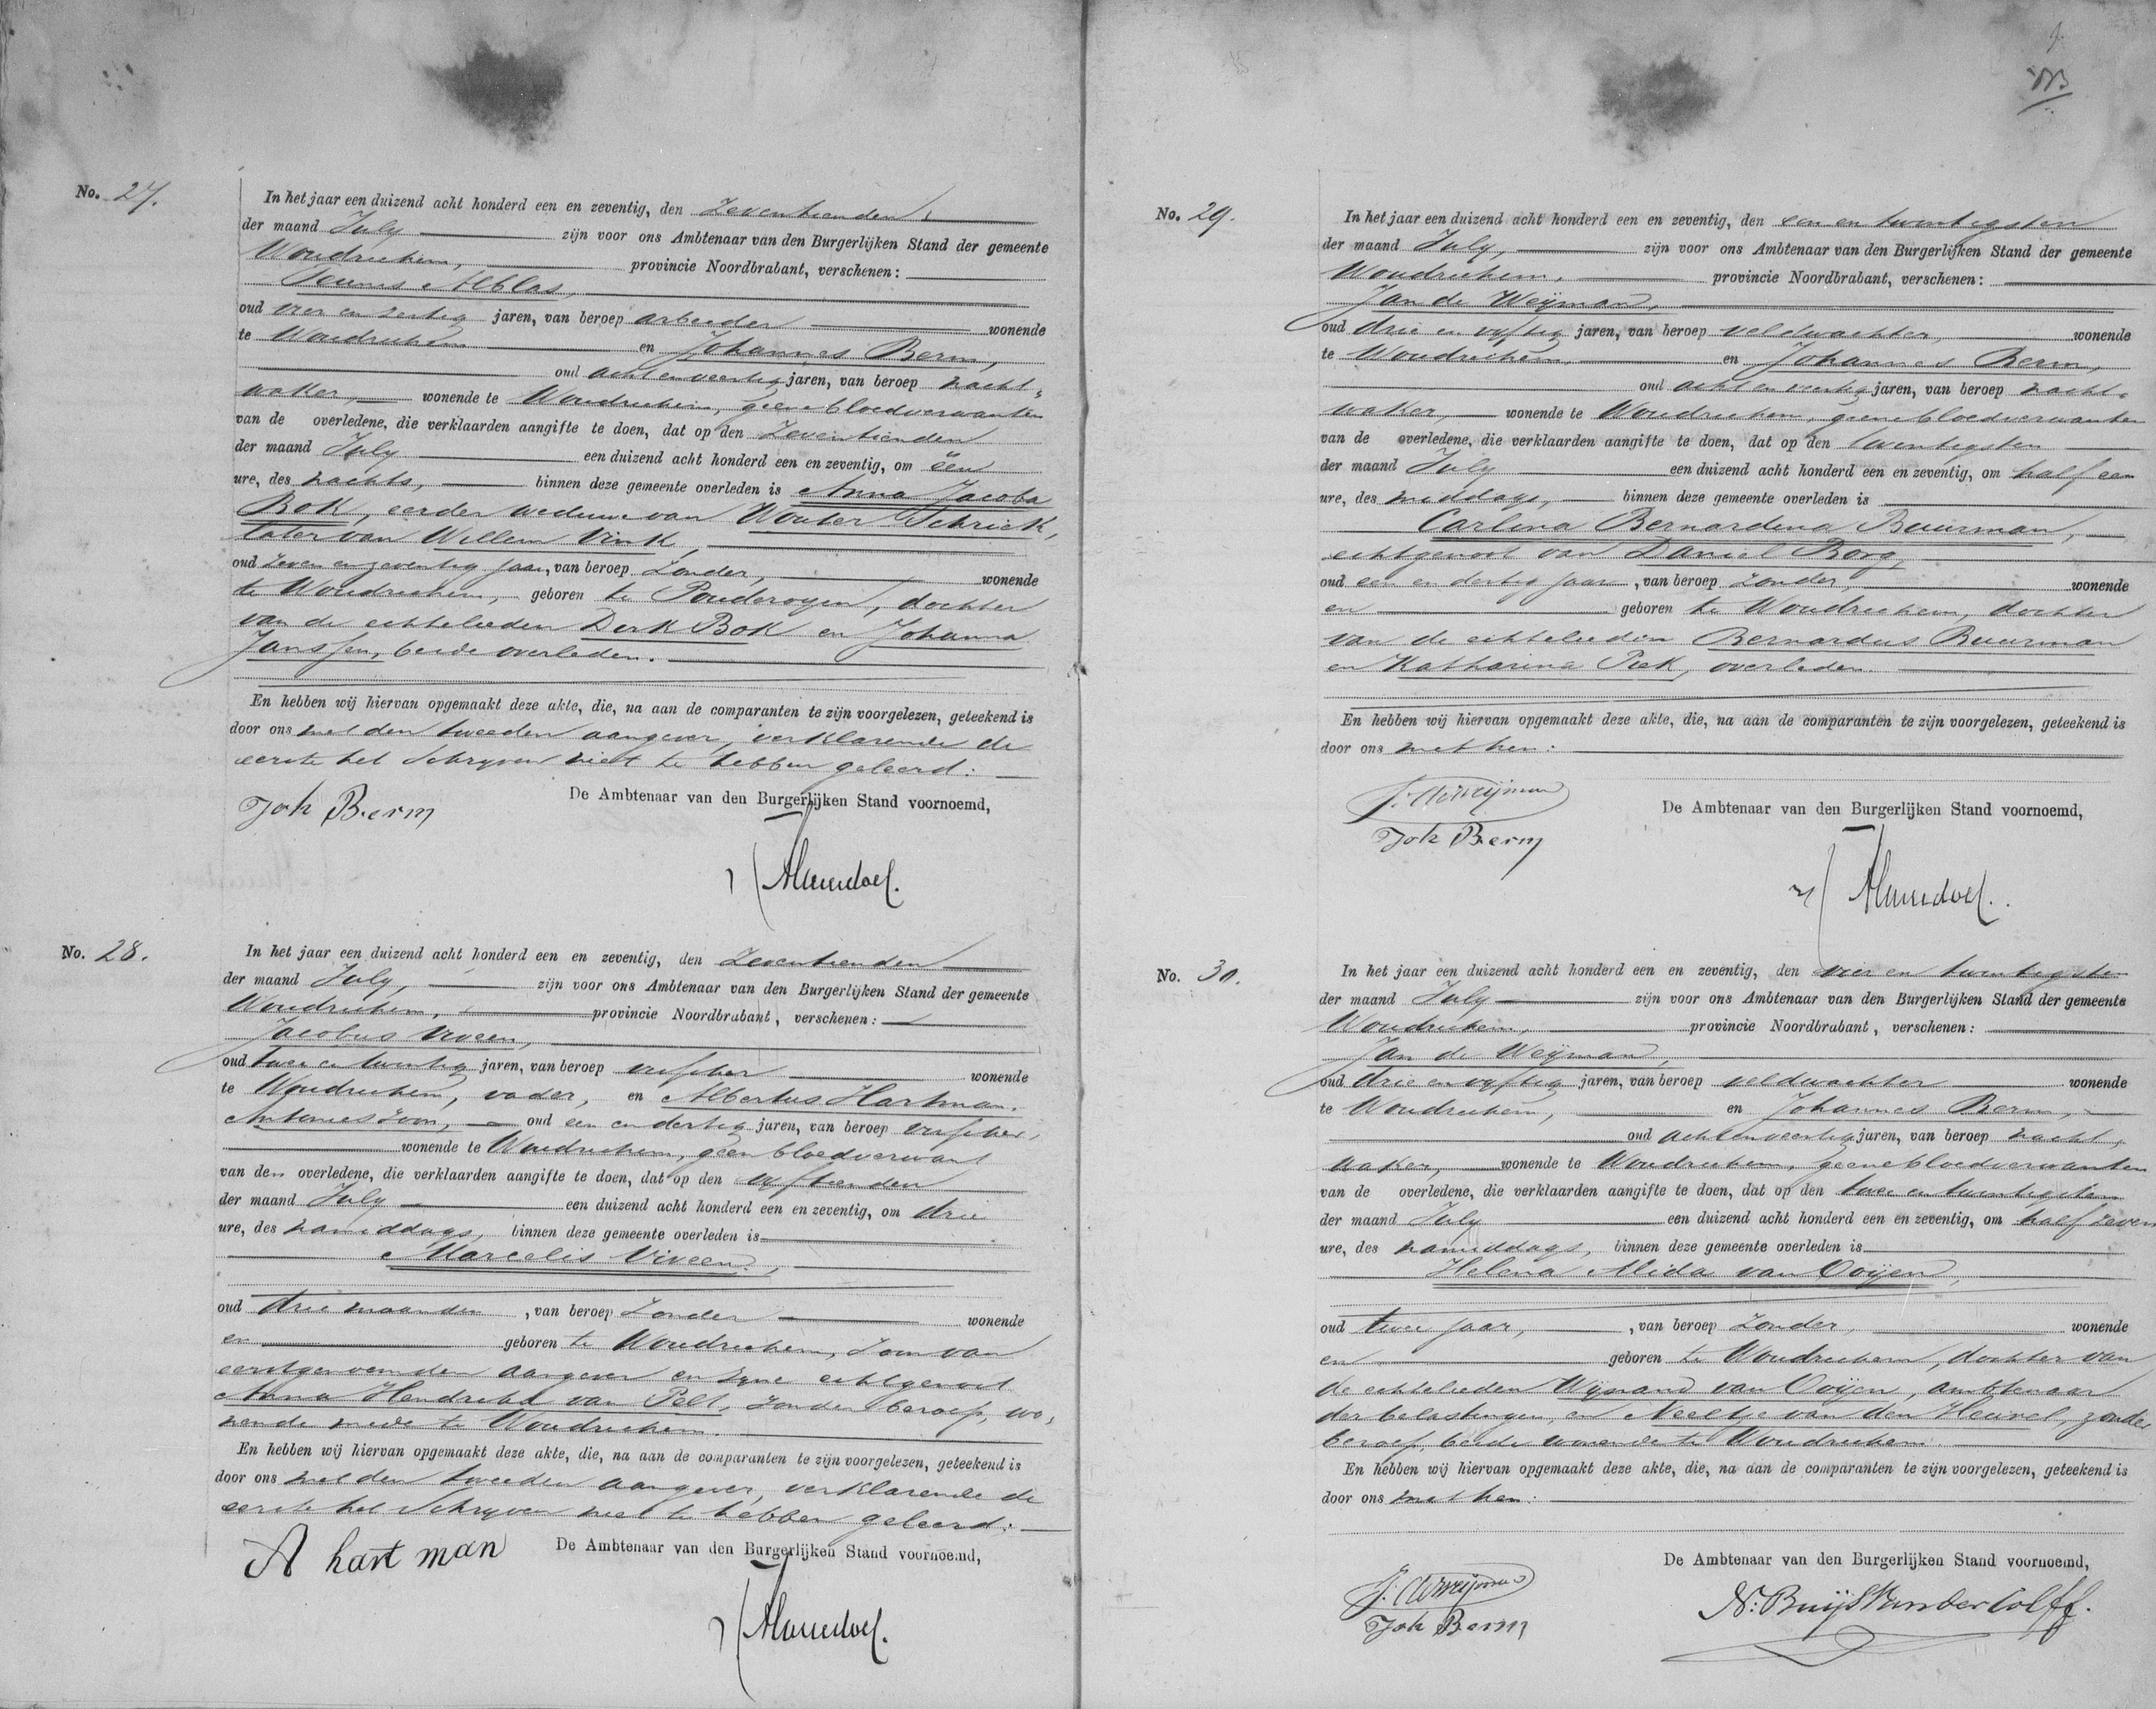 No. 27.
In het jaar een duizend acht honderd een en zeventig, den Zeventienden
der maand July zijn voor ons Ambtenaar van den Burgerlijken Stand der gemeente
Woudrichem, provincie Noordbrabant, verschenen:
Teunis Alblas,
oud vier en zestig jaren, van beroep arbeider wonende
te Woudrichem en Johannes Berm,
oud acht en veertig jaren, van beroep nacht=
waker, wonende te Woudrichem, geene bloedverwanten
van de overledene, die verklaarden aangifte te doen, dat op den Zeventienden
der maand July een duizend acht honderd een en zeventig, om één
ure, des nachts, binnen deze gemeente overleden is Anna Jacoba
Bok, eerder weduwe van Wouter Schrick,
later van Willem Vink,
oud Zeven en zeventig jaar, van beroep Zonder, wonende
te Woudrichem, geboren te Pouderoyen, dochter
van de echtelieden Derk Bok en Johanna
Janssen, beide overleden.
En hebben wij hiervan opgemaakt deze akte, die, na aan de comparanten te zijn voorgelezen, geteekend is
door ons met den tweeden aangever, verklarende de
eerste het schryven niet te hebben geleerd:
Joh Berm
De Ambtenaar van den Burgerlijken Stand voornoemd,
No. 28.
In het jaar een duizend acht honderd een en zeventig, den Zeventienden
der maand July, zijn voor ons Ambtenaar van den Burgerlijken Stand der gemeente
Woudrichem, provincie Noordbrabant, verschenen:
Jacobus Viveen,
oud twee en twintig jaren, van beroep visscher wonende
te Woudrichem, vader, en Albertus Hartman,
Antonieszoon, oud een en dertig jaren, van beroep visscher,
wonende te Woudrichem, geen bloedverwant
van den overledene, die verklaarden aangifte te doen, dat op den vyftienden
der maand July een duizend acht honderd een en zeventig, om drie
ure, des namiddags, binnen deze gemeente overleden is
Marcelis Viveen,
oud drie maanden, van beroep Zonder wonende
en geboren te Woudrichem, Zoon van
eerstgenoemden aangever en zyne echtgenoot
Anna Hendrika van Pelt, zonder beroep, wo,
nende mede te Woudrichem.
En hebben wij hiervan opgemaakt deze akte, die, na aan de comparanten te zijn voorgelezen, geteekend is
door ons met den tweeden aangever, verklarende de
eerste het Schryven niet te hebben geleerd:
A hart man
De Ambtenaar van den Burgerlijken Stand voornoemd,
No. 29.
In het jaar een duizend acht honderd een en zeventig, den een en twintigsten
der maand July, zijn voor ons Ambtenaar van den Burgerlijken Stand der gemeente
Woudrichem, provincie Noordbrabant, verschenen:
Jan de Weijman,
oud drie en vyftig jaren, van beroep veldwachter, wonende
te Woudrichem, en Johannes Berm,
oud acht en veertig jaren, van beroep nacht=
waker, wonende te Woudrichem, geene bloedverwanten
van de overledene, die verklaarden aangifte te doen, dat op den twintigsten
der maand July een duizend acht honderd een en zeventig, om half een
ure, des middags, binnen deze gemeente overleden is
Carlina Bernardina Buurman,
echtgenoot van Daniel Borg,
oud een en dertig jaar, van beroep zonder, wonende
en geboren te Woudrichem, dochter
van de echtelieden Bernardus Buurman
en Katharina Piek, overleden.
En hebben wij hiervan opgemaakt deze akte, die, na aan de comparanten te zijn voorgelezen, geteekend is
door ons met hen:
J. de Weijman
Joh Berm
De Ambtenaar van den Burgerlijken Stand voornoemd,
No. 30.
In het jaar een duizend acht honderd een en zeventig, den vier en twintigsten
der maand July zijn voor ons Ambtenaar van den Burgerlijken Stand der gemeente
Woudrichem, provincie Noordbrabant, verschenen:
Jan de Weijman,
oud drie en vyftig jaren, van beroep veldwachter wonende
te Woudrichem, en Johannes Berm,
oud acht en veertig jaren, van beroep nacht,
waker, wonende te Woudrichem, geene bloedverwanten
van de overledene, die verklaarden aangifte te doen, dat op den twee en twintigsten
der maand July een duizend acht honderd een en zeventig, om half zeven
ure, des namiddags, binnen deze gemeente overleden is
Helena Alida van Ooijen,
oud twee jaar, van beroep Zonder, wonende
en geboren te Woudrichem, dochter van
de echtelieden Wijnand van Ooijen, ambtenaar
der belastingen, en Neeltje van den Heuvel, zonder
beroep, beide wonende te Woudrichem.
En hebben wij hiervan opgemaakt deze akte, die, na aan de comparanten te zijn voorgelezen, geteekend is
door ons met hen:
J. de Weijman
Joh Berm
De Ambtenaar van den Burgerlijken Stand voornoemd,